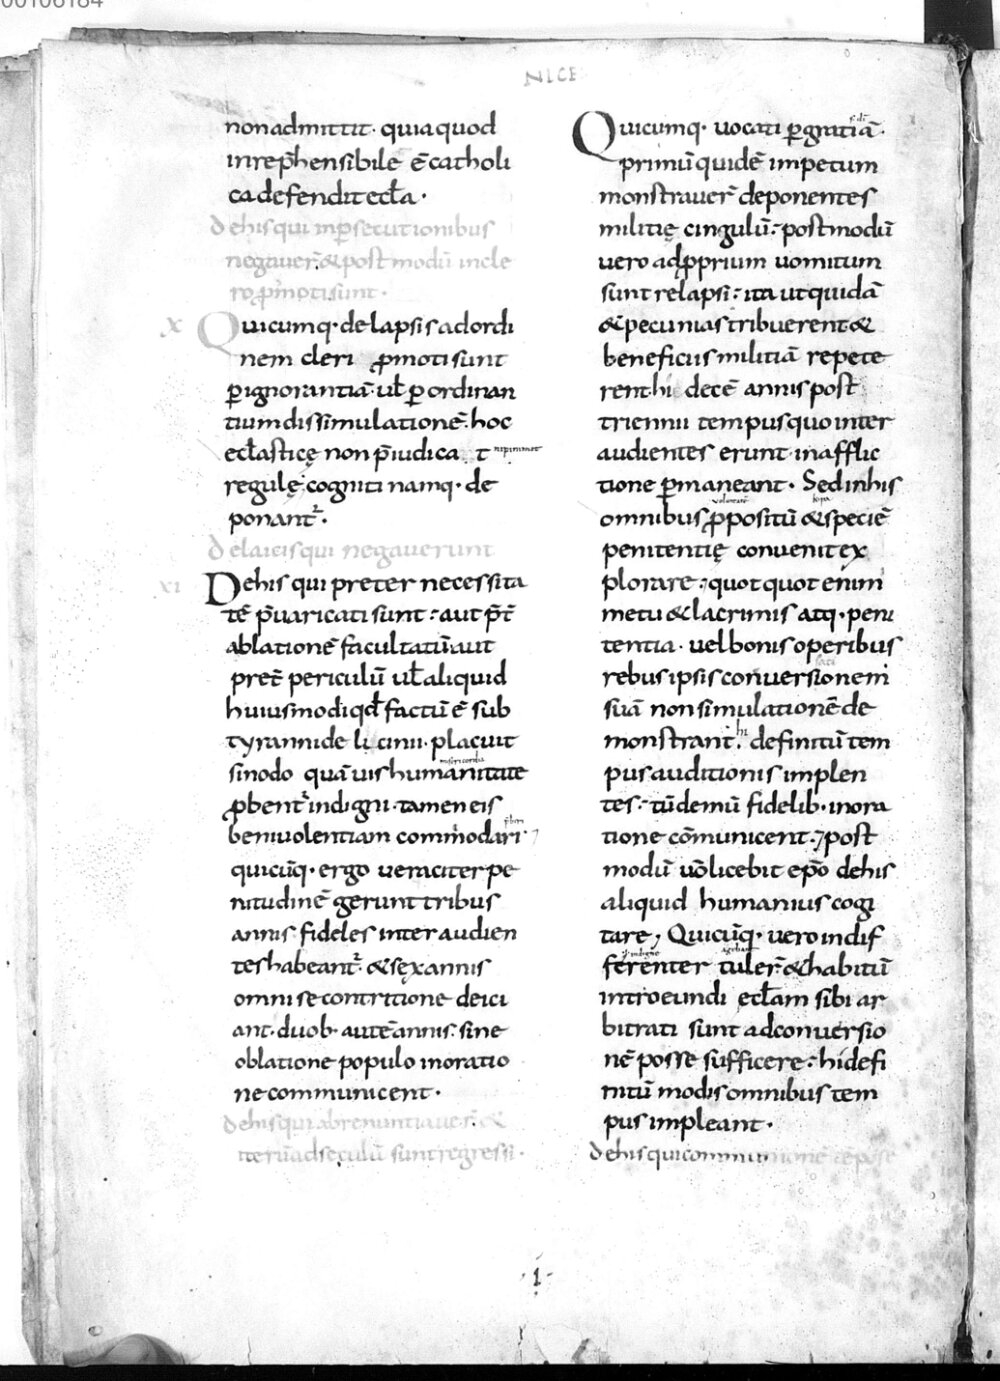 00106184
NICE
non admittit· quia quod
inrep̄hensibile ē catholi
ca defendit eccƚa·
de his qui in ꝑsecutionibus
negauer̄ & post modū in cle
ro ꝓmoti sunt·
X Quicumq· de lapsis ad ordi
nem cleri ꝓmoti sunt
ꝑ ignorantiā· uƚ ꝑ ordinan
tium dissimulationē· hoc
eccƚasticę non p̄iudicat
regulę cogniti namq· de
ponant᷑·
de laicis qui negauerunt
XI De his qui preter necessita
tē p̄uaricati sunt: aut p̄t̄
ablationē facultatū· aut
pret̄ periculū uƚ aliquid
huiusmodi qd̄ factū ē sub
tyrannide licinii· placuit
misericordia
sinodo quāuis humanitate
ꝓbent᷑ indigni· tamen eis
beniuolentiam commodari·
quicūq· ergo ueraciter pe
nitudinē gerunt tribus
annis fideles inter audien
tes habeant᷑· & sęx annis
omni se contritione deici
ant· duob· autē annis· sine
oblatione populo in oratio
ne communicent·
de his qui abrenuntiauer̄ &
iterū ad seculū sunt regressi·
Quicumq· uocati ꝑ gratiā·
primū quidē impetum
monstrauer̄ deponentes
militię cingulū: postmodū
uero ad ꝓprium uomitum
sunt relapsi: ita ut quidā
& pecunias tribuerent &
beneficiis militiā repete
rent· hi decē annis post
triennii tempus quo inter
audientes erunt· in afflic
tione ꝑmaneant· Sed in his
omnibus ꝓpositū & speciē
penitentię conuenit ex
plorare: quotquot enim
metu & lacrimis atq· peni
tentia· uel bonis operibus
rebus ipsis conuersionem
suā non simulationē de
hi
monstrant· definitū tem
pus auditionis implen
tes: tū demū fidelib· in ora
tione cōmunicent· ⁊ post
modū uō licebit epō de his
aliquid humanius cogi
tare; Quicūq· uero indif
ferenter tuler̄ & habitū
introeundi eccƚam sibi ar
bitrati sunt ad conuersio
nē posse sufficere: hi defi
nitū modis omnibus tem
pus impleant·
de his qui communionē
·1·